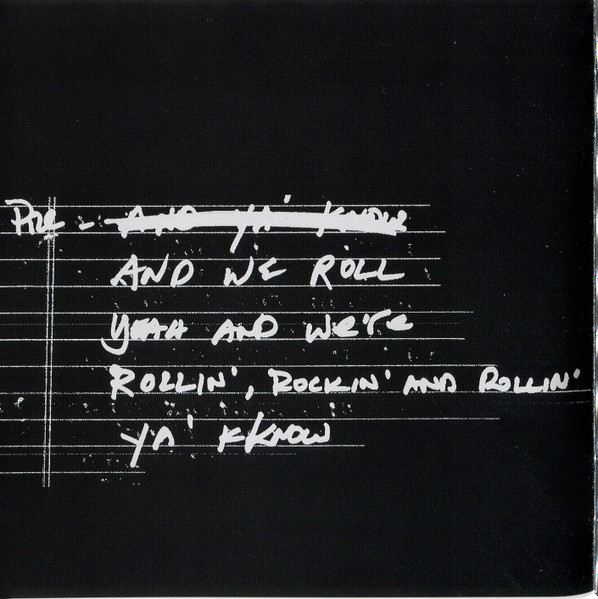 Pre - And ya' know
And we roll
Yeah and we're
Rollin', Rockin' and Rollin'
Ya' kknow